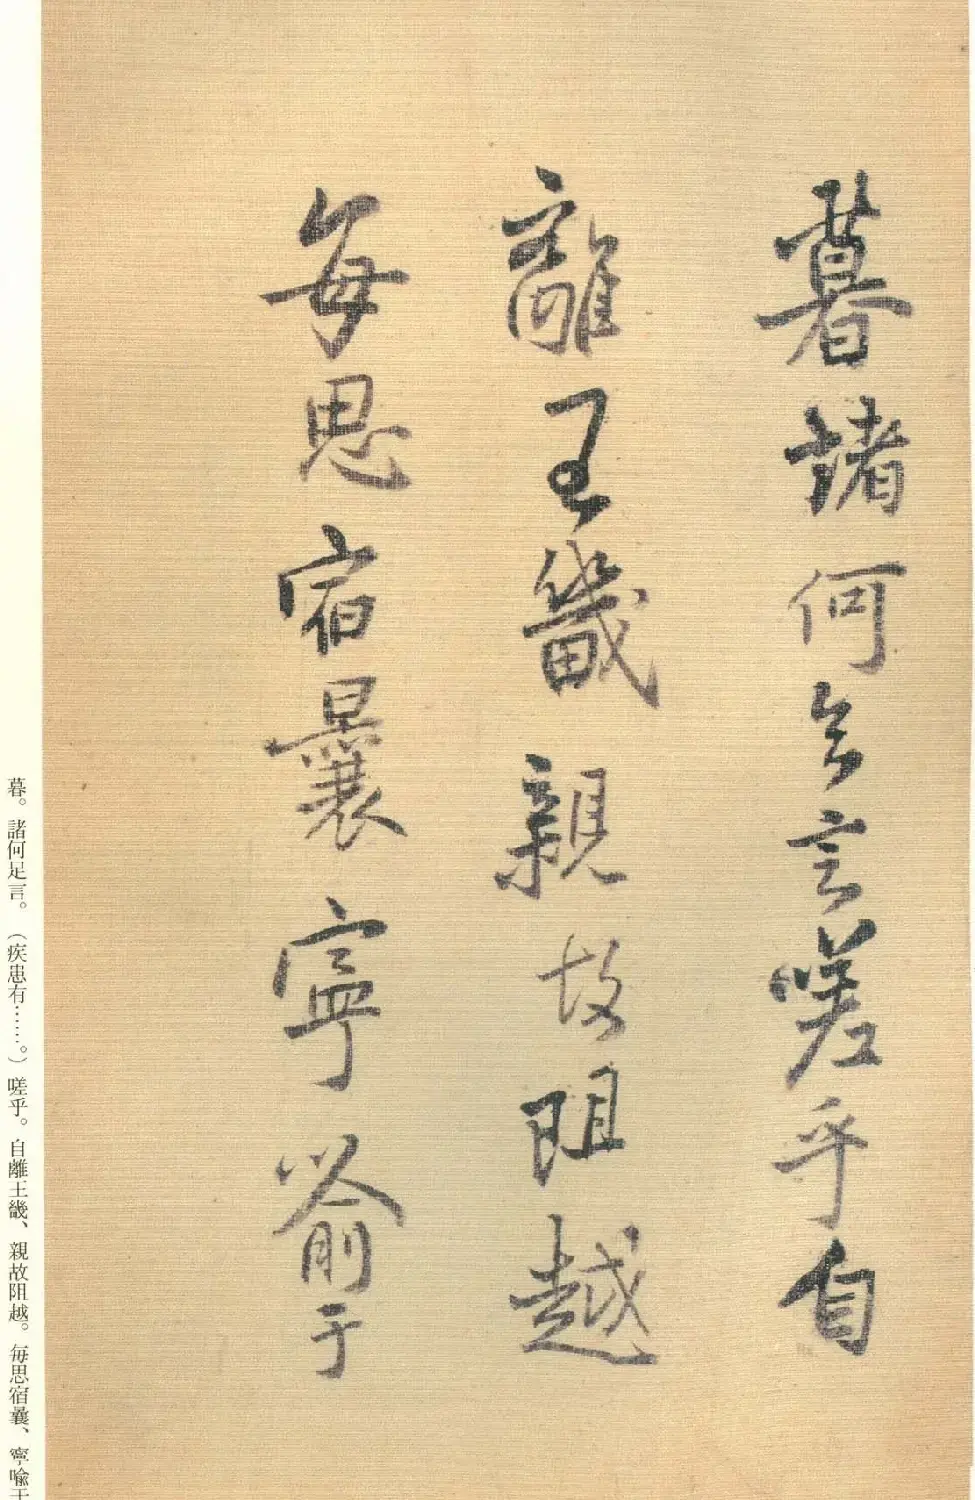 暮諸何足言嗟乎自
離王畿親故阻越
每思宿曩寧喻于
暮。諸何足言。（疾患有……。）嗟乎。自離王畿、親故阻越。每思宿曩、寧喻于